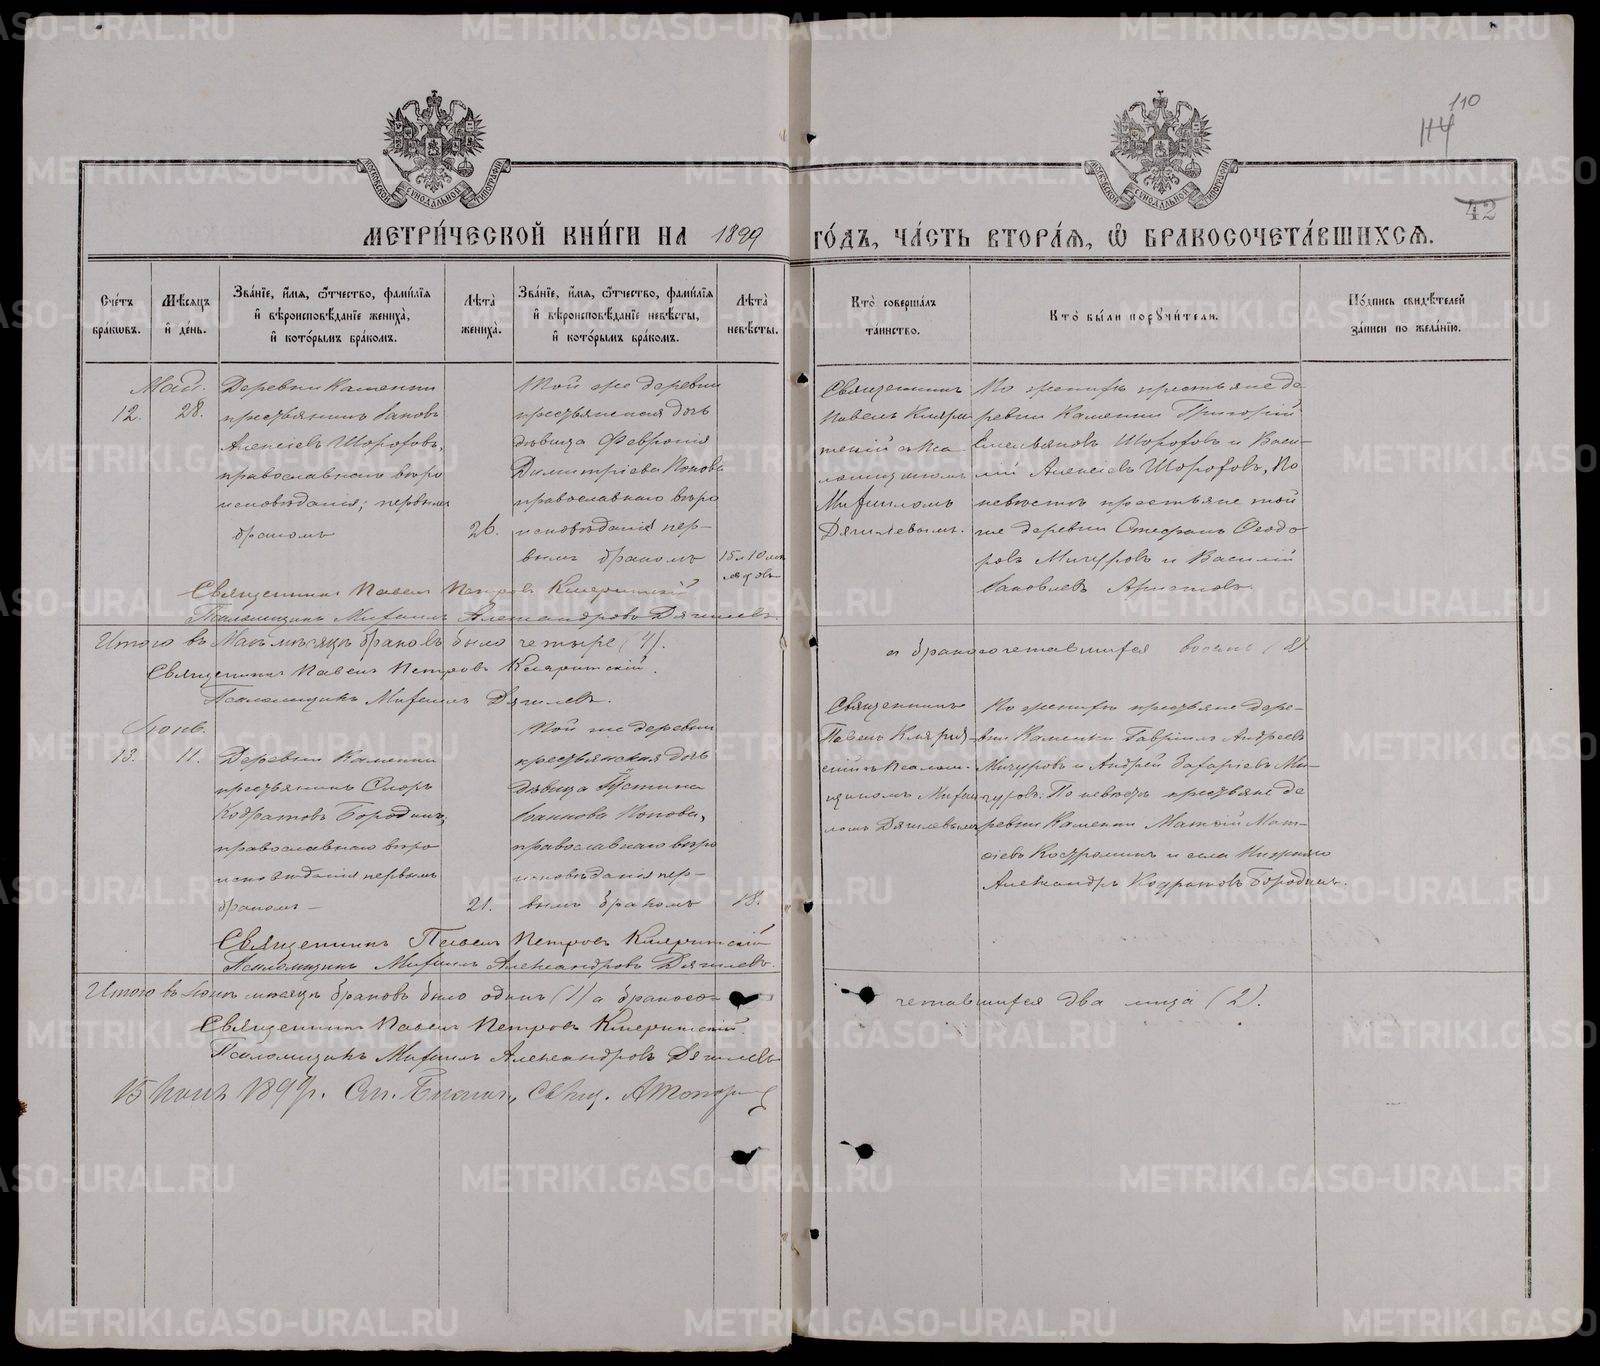 110
114
42
МЕТРИ́ЧЕСКОЙ КНИ́ГИ НА 1899 ГО́ДЪ, ЧА́СТЬ ВТОРА́Я, Ѡ БРАКОСОЧЕТА́ВШИХСЯ.
Сче́тъ бра́ковъ.
Мѣ́сяцъ и де́нь.
Зва́нїе, и́мя, ѻ́тчество, фами́лїя и вѣроисповѣ́данїе жениха̀, и кото́рымъ бра́комъ.
Лѣ́та жениха̀.
Зва́нїе, и́мя, ѻ́тчество, фами́лїя и вѣроисповѣ́данїе невѣ́сты, и кото́рымъ бра́комъ.
Лѣ́та невѣ́сты.
Кто̀ соверша́лъ та́инство.
Кто̀ бы́ли поручи́тели.
По́дпись свидѣ́телей за́писи по жела́нїю.
Май.
12. 28.
Деревни Каменки
крестьянинъ Іаковъ
Алексіевъ Шорохов,
православнаго вѣро
исповѣданія; первымъ
бракомъ
26.
Той же деревни
крестьянская дочь
дѣвица Феврония
Димитріева Попова
православнаго вѣро
исповѣданія пер-
вымъ бракомъ
15 л 10 мѣ
сяцовъ
Священникъ
Павелъ Кляри
тскій съ Пса
ломщикомъ
Михаиломъ
Дягилевымъ.
По женихѣ крестьяне де
ревни Каменки Григорій
Емельяновъ Шороховъ и Васи-
лій Алексіевъ Шороховъ, По
невѣстѣ крестьяне той
же деревни Стефанъ Ѳеодо-
ровъ Мичуровъ и Василій
Іаковлевъ Аристовъ.
Священникъ Павелъ Петровъ Кляритскій
Псаломщикъ Михаилъ Александровъ Дягилевъ.
Итого въ Маѣ мѣсяцѣ браковъ было четыре (4).
а бракосочетавшихся восемь (8)
Священникъ Павелъ Петровъ Кляритскій.
Псаломщикъ Михаилъ Дягилевъ.
Іюнь.
13. 11.
Деревни Каменки
крестьянинъ Сидоръ
Кодратовъ Бородинъ,
православнаго вѣро
исповѣданія первымъ
бракомъ –
21.
Той же деревни
крестьянская дочь
дѣвица Іустина
Іоаннова Попова,
православнаго вѣро
исповѣданія пер-
вымъ бракомъ
18.
Священникъ
Павелъ Кляритс-
скій съ Псалом-
щикомъ Михаи
ломъ Дягилевымъ
По женихѣ крестьяне дере-
вни Каменки Гавріилъ Андреевъ
Мичуровъ и Андрей Захаріевъ Ми-
чуровъ. По невѣстѣ крестьяне де
ревни Каменки Матѳій Мат-
ѳіевъ Костроминъ и села Нижняго
Александръ Кодратовъ Бородинъ.
Священникъ Павелъ Петровъ Кляритскій
Псаломщикъ Михаилъ Александровъ Дягилевъ.
Итого въ Іюнѣ мѣсяцѣ браковъ было одинъ (1) а бракосо-
четавшихся два лица (2).
Священникъ Павелъ Петровъ Кляритскій.
Псаломщикъ Михаилъ Александровъ Дягилевъ
15 Іюня 1899 г.
METRIKI.GASO-URAL.RU